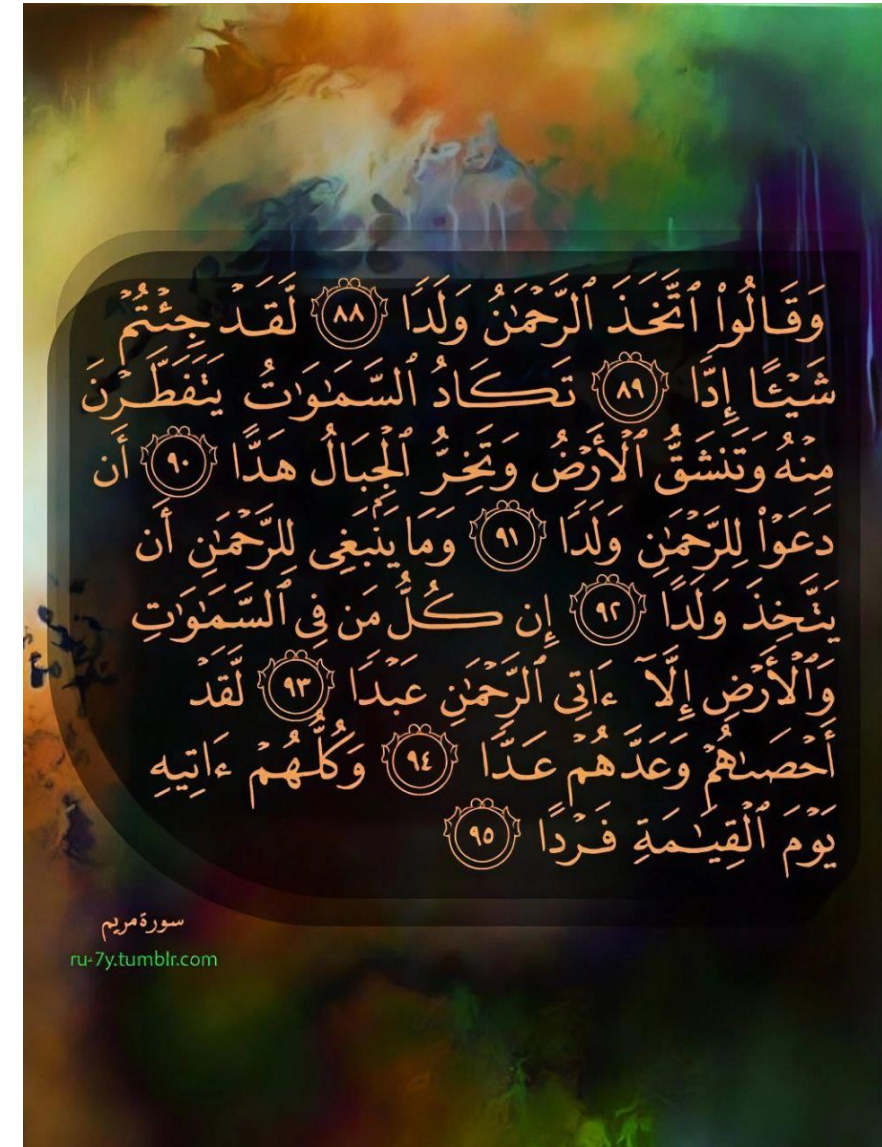 وَقَالُوا۟ ٱتَّخَذَ ٱلرَّحْمَـٰنُ وَلَدًا ٨٨ لَّقَدْ جِئْتُمْ
شَيْـًٔا إِدًّا ٨٩ تَكَادُ ٱلسَّمَـٰوَٰتُ يَتَفَطَّرْنَ
مِنْهُ وَتَنشَقُّ ٱلْأَرْضُ وَتَخِرُّ ٱلْجِبَالُ هَدًّا ٩٠ أَن
دَعَوْا۟ لِلرَّحْمَـٰنِ وَلَدًا ٩١ وَمَا يَنۢبَغِى لِلرَّحْمَـٰنِ أَن
يَتَّخِذَ وَلَدًا ٩٢ إِن كُلُّ مَن فِى ٱلسَّمَـٰوَٰتِ
وَٱلْأَرْضِ إِلَّآ ءَاتِى ٱلرَّحْمَـٰنِ عَبْدًا ٩٣ لَّقَدْ
أَحْصَىٰهُمْ وَعَدَّهُمْ عَدًّا ٩٤ وَكُلُّهُمْ ءَاتِيهِ
يَوْمَ ٱلْقِيَـٰمَةِ فَرْدًا ٩٥
سورة مريم
ru-7y.tumblr.com